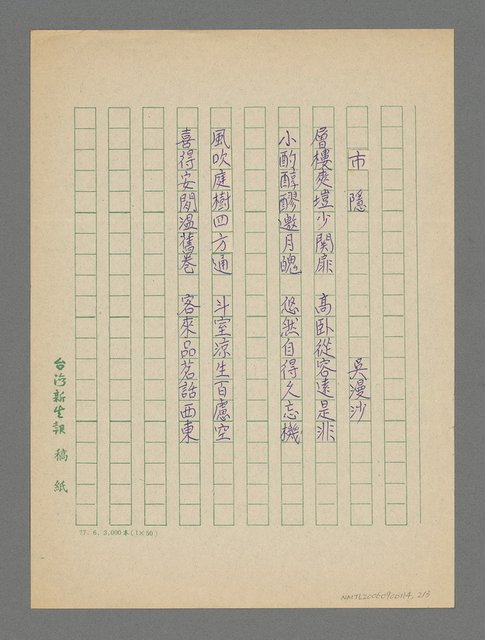 市隱
吳漫沙
層樓爽塏少関扉　高卧從容遠是非
小酌醇醪邀月魄　悠然自得久忘機
風吹庭樹四方通　斗室涼生百慮空
喜得安閒溫舊卷　客來品茗話西東
台灣新生報　稿紙
77. 6. 3,000本(1×50)
NMTL20060900114, 2/3